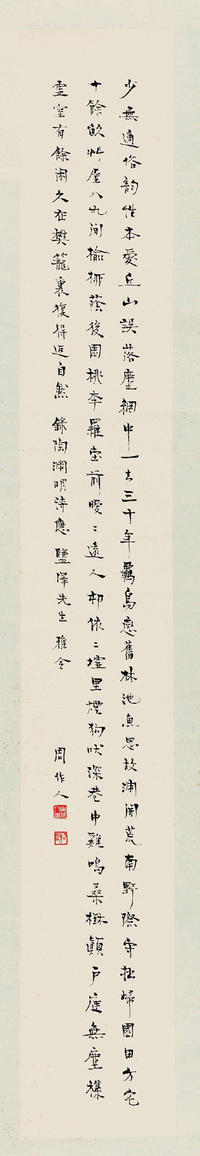 少無適俗韵性本愛丘山誤落塵網中一去三十年羈鳥戀舊林池魚思故淵開荒南野際守拙歸園田方宅
十餘畝艸屋八九間榆柳蔭後園桃李羅堂前曖〻遠人邨依〻墟里煙狗吠深巷中雞鳴桑樹顛戶庭無塵襍
虛室有餘閑久在樊籠裏復得返自然 錄陶淵明詩應 鹽澤先生雅令
周作人